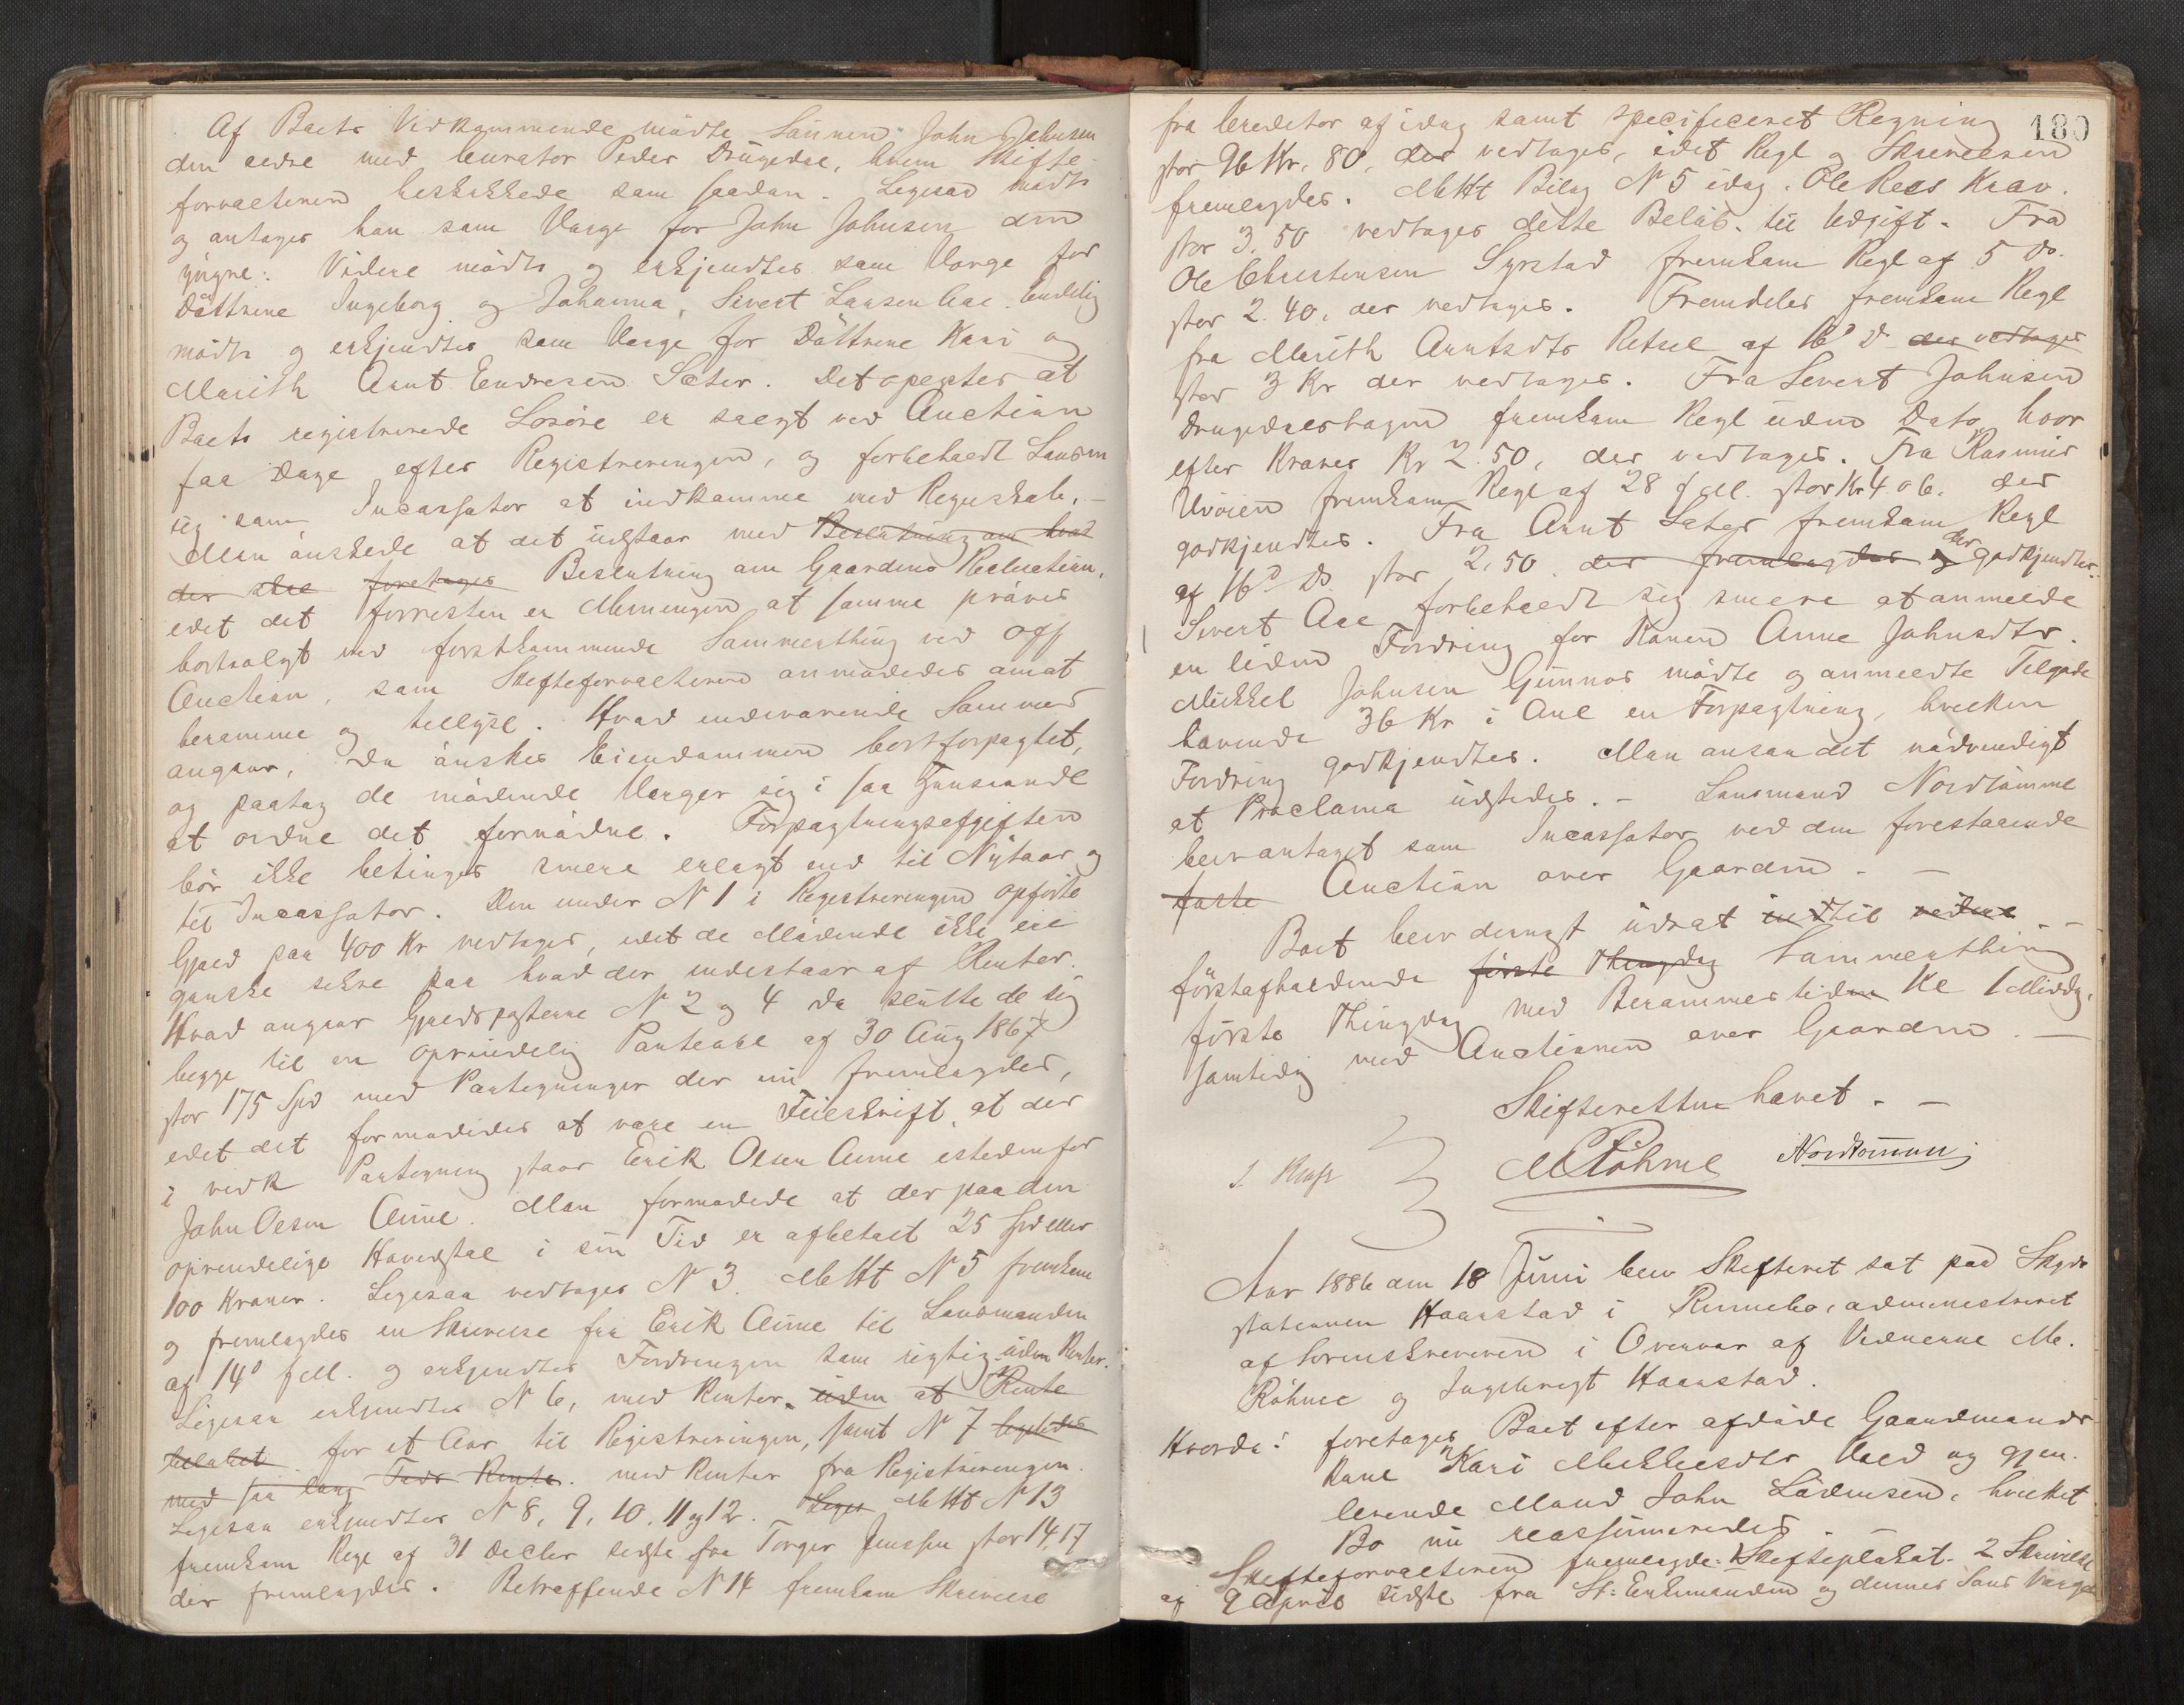 Af Boets Vedkommende mödte Sönnen John Johnsen
den eldre med Curator Peder Drugedal, hvem Skifte-
forvalteren beskikkede som saadan. Ligesaa mödte
og antages han som Værge for John Johnsen den
yngre. Videre mödte og erkjendtes som Værge for
Döttrene Ingeborg og Johanna, Sivert Larsen Aae. Endelig
mödte og erkjendtes som Værge for Döttrene Kari og
Marith Arnt Endresen Sæter. Det oplystes at
Boets registrerede Lösöre er solgt ved Auction
faa Dage efter Registreringen, og forbeholdt Lensm
sig som Incassator at indkomme med Regnskab. -
Man önskede at det udstaar med Beslutning om hvad
der skal foretages Beslutning om Gaardens Realisation,
idet det forresten er Meningen at samme pröves
bortsolgt ved forstkommende Sommerthing ved off
Auction, som Skifteforvalteren anmodedes om at
beramme og tillyse. Hvad indeværende Sommer
angaar, da önskes Eiendommen bortforpagtet,
og paatog de mödende Værger sig i saa Henseende
at ordne det fornödne. Forpagtningsafgiften
bör ikke betinges senere erlagt end til Nytaar og
til Incassator. Den under N 1 i Registreringen opförte
Gjæld paa 400 Kr vedtages, idet de Mödende ikke ere
ganske sikre paa hvad der indestaar af Renter.
Hvad angaar Gjældsposterne N 2 og 4 da slutte de sig
begge til en oprindelig Panteobl af 30 Aug 1867
stor 175 Spd med Paategninger der nu fremlagdes,
idet det formodedes at være en Feilskrift, at der
i vedk Paategning staar Erik Olsen Aune istedenfor
John Olsen Aune. Man formodede at der paa den
oprindelige Hovedstol i sin Tid er afbetalt 25 Spd eller
100 Kroner. Ligesaa vedtages N 3. M Ht N 5 fremkom
og fremlagdes en Skrivelse fra Erik Aune til Lensmanden
af 14d f M. og erkjendtes Fordringen som rigtig uden Renter.
Ligesaa erkjendtes N 6, med Renter uden at Rente
tillobet for et Aar til Registreringen, samt N 7
med saa lang Tids Rente. med Renter fra Registreringen.
Ligesaa erkjendtes N 8, 9, 10, 11 og 12. Liges M Ht N 13
fremkom Regn af 31 Decbr sidste fra Torger Jenssen stor 14,17
der fremlagdes. Betræffende N 14 fremkom Skrivelse
180
fra Creditor af idag samt specificeret Regning
stor 96 Kr. 80, der vedtages, idet Regn og Skrivelsen
fremlagdes. M Ht Bilag N 5 idag. Ole Rees Krav.
stor 3.50 vedtages dette Belöb til Udgift. Fra
Ole Christensen Syrstad fremkom Regn af 5 Ds.
stor 2.40, der vedtages. Fremdeles fremkom Regn
fra Marith Arntsdtr Retsel af 16d D der vedtages
stor 3 Kr der vedtages. Fra Sivert Johnsen
Drugedalshagen fremkom Regn uden Dato, hvor
efter Kræves Kr 2.50, der vedtages. Fra Rasmus
Uvoien fremkom Regn af 28 f M. stor Kr 4 06, der
godkjendtes. Fra Arnt Sæter fremkom Regn
af 16d Ds stor 2,50 der fremlagdes og der godkjendtes.
Sivert Aae forbeholdt sig senere at anmelde
en liden Fordring for Konen Anne Johnsdtr.
Mikkel Johnsen Gunnes mödte og anmeldte Tilgode
havende 36 Kr i Anl en Forpagtning, hvilken
Fordring godkjendtes. Man ansaa det nödvendigt
at Proclama udstedes. - Lensmand Nordtömme
blev antaget som Incassator ved den forestaaende
faste Auction over Gaarden - -
Boet blev dernæst udsat ind til videre - -
förstafholdende förste Thingdag Sommerthing
förste Thingdag med Berammestiden Kl 1 Middg.
samtidig med Auctionen over Gaarden. -
Skifteretten hævet. -
J. Krag MRöhme Nordtömme
Aar 1886 den 18 Juni blev Skifteret sat paa Skyds
stationen Haarstad i Rennebo, administreret
af Sorenskriveren i Overvær af Vidnerne M.
Röhme og Ingebrigt Haarstad.
Hvorda: foretages Boet efter afdöde Gaardmands-
kone Kari Mikkelsdtr Vold og gjen-
levende Mand John Lödensen, hvilket
Bo nu reassumeredes. -
Skifteforvalteren fremlagde: 1 Skifteplakat - 2 Skrivelse
af 9 April sidste fra St: Enkemanden og dennes Söns Værge